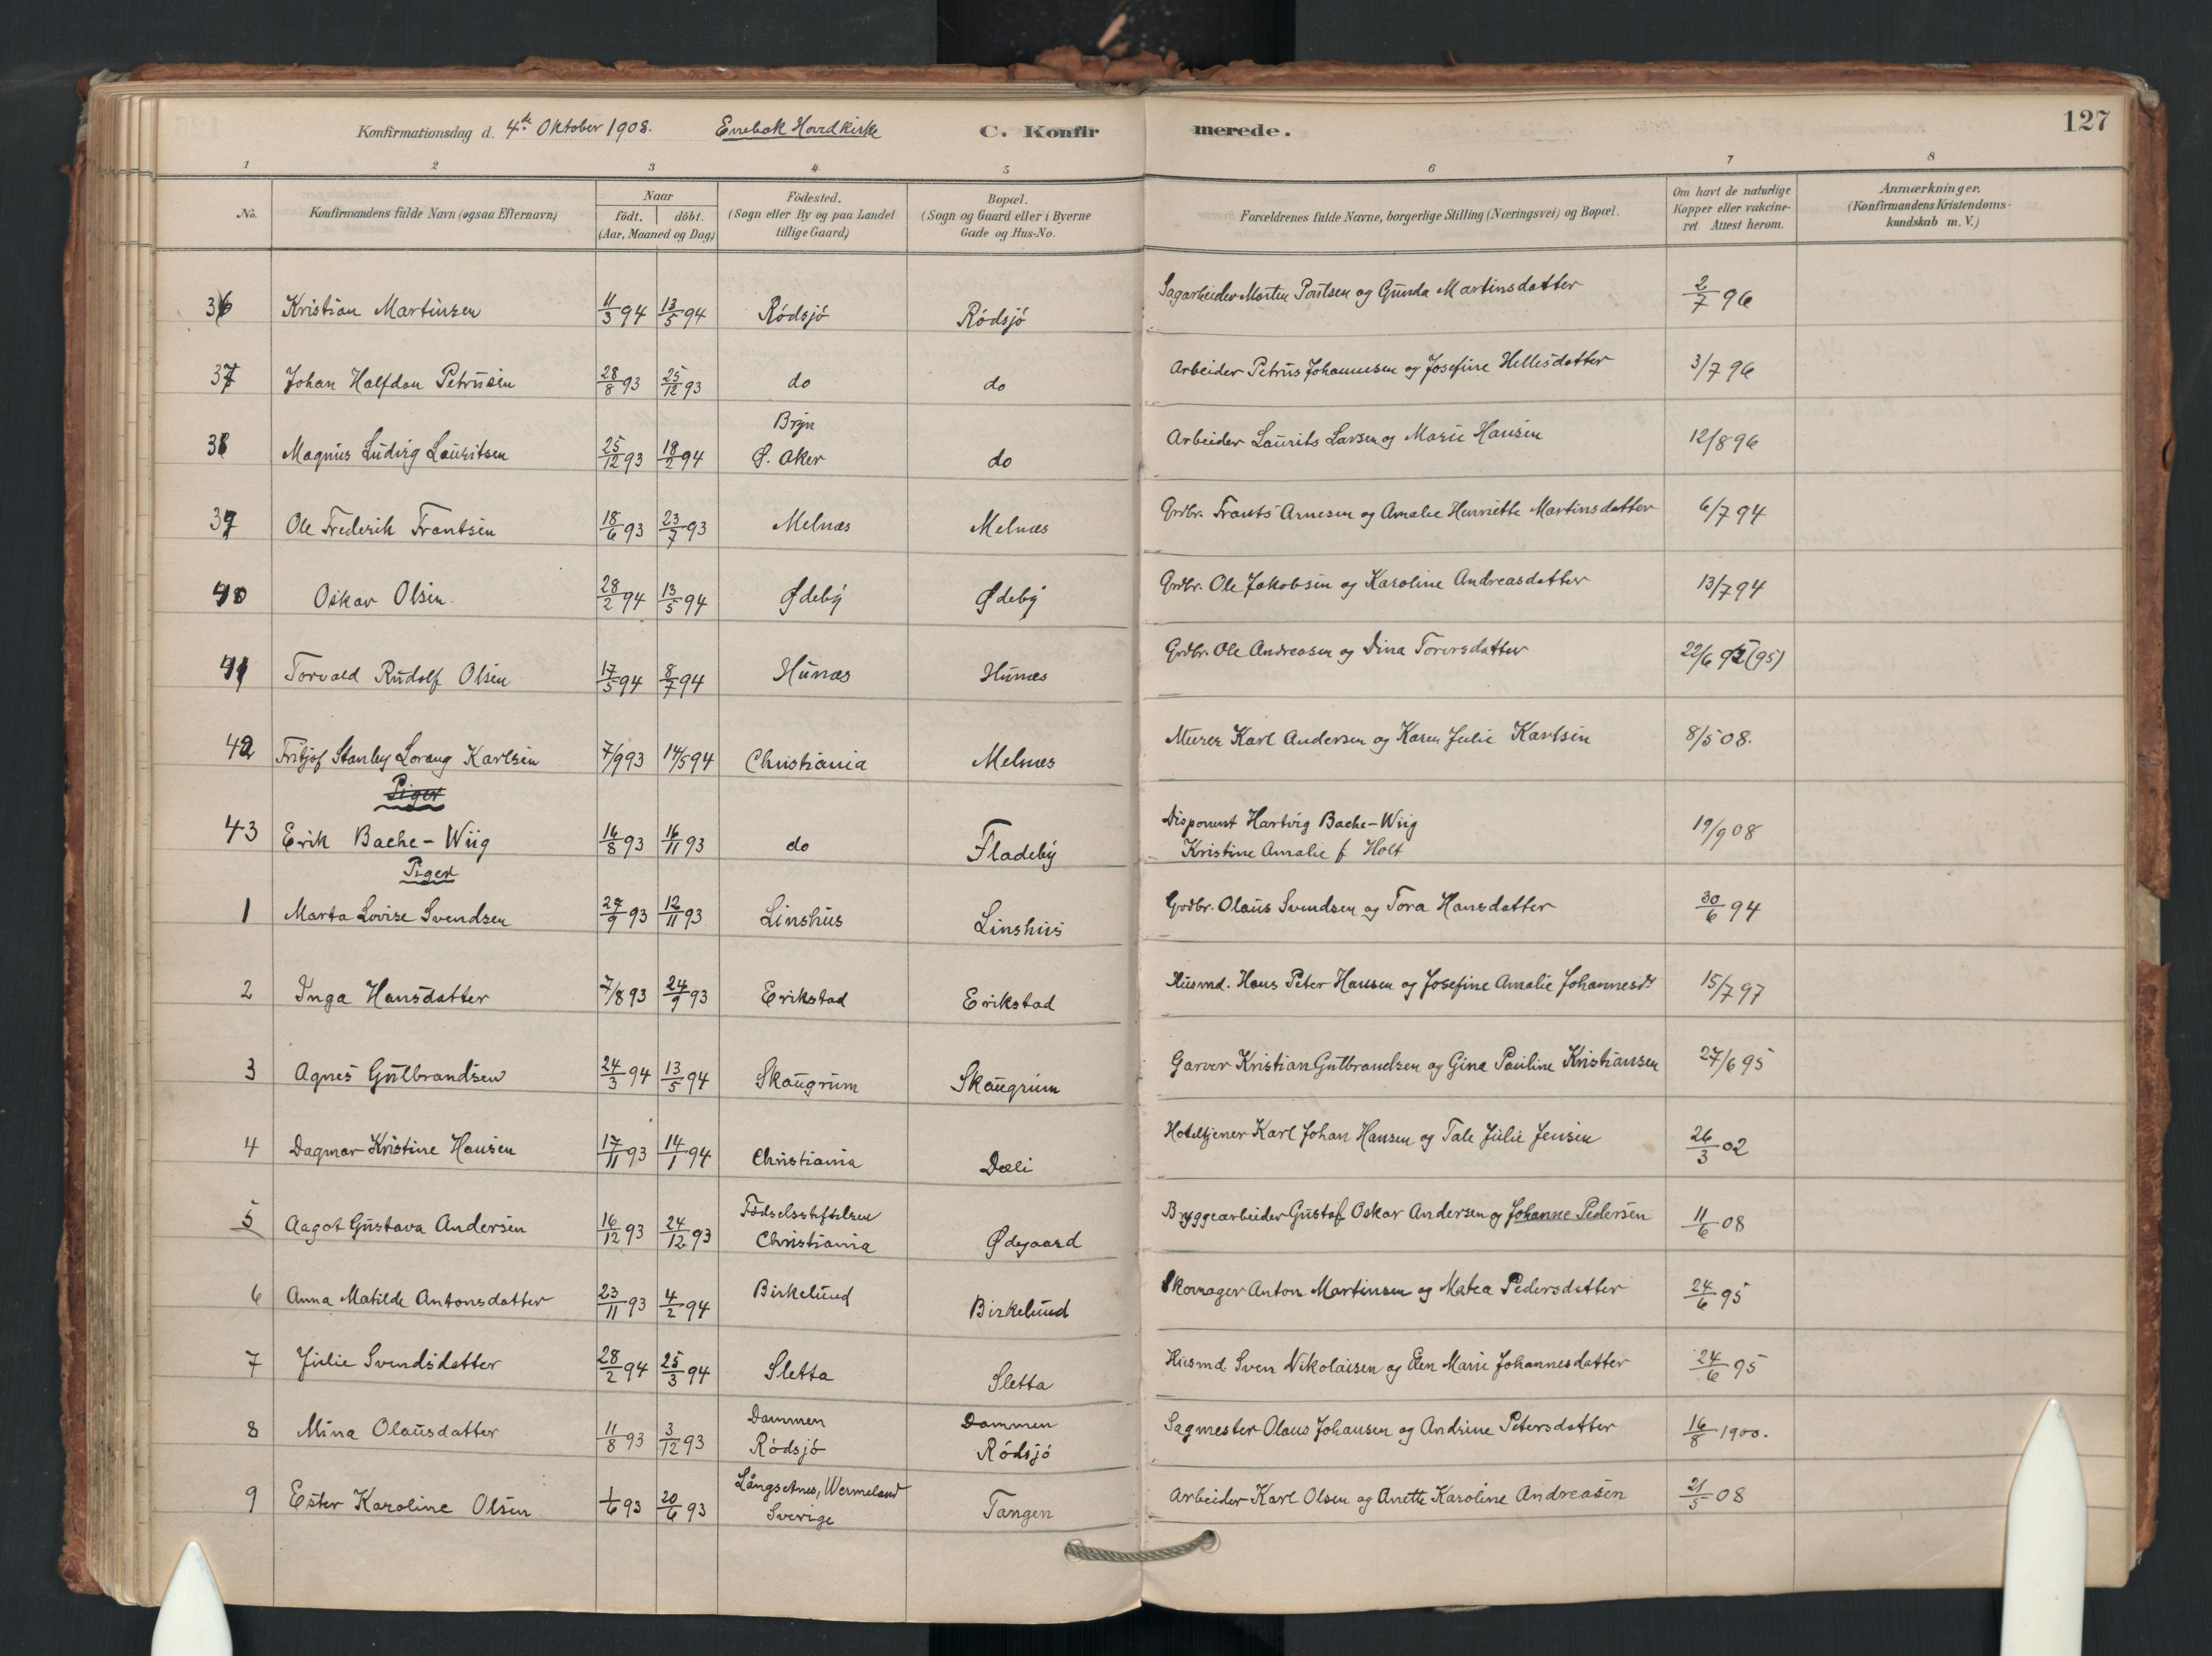 127
Konfirmationsdag d. 4de Oktober 1908. Enebak Hovedkirke C. Konfirmerede.
1 2 3 4 5 6 7 8
No. Konfirmandens fulde Navn (ogsaa Efternavn) Naar födt. döbt. (Aar, Maaned og Dag) Födested. (Sogn eller By og paa Landet tillige Gaard) Bopæl. (Sogn og Gaard eller i Byerne Gade og Hus-No. Forældrenes fulde Navne, borgerlige Stilling (Næringsvei) og Bopæl. Om havt de naturlige Kopper eller vakcineret Attest herom. Anmærkninger. (Konfirmandens Kristendomskundskab m. V.)
36 Kristian Martinsen 11/3 94 13/5 94 Rödsjö Rödsjö Sagarbeider Martin Poulsen og Gunda Martinsdatter 2/7 96
37 Johan Halfdan Petrusen 28/8 93 25/12 93 do do Arbeider Petrus Johannesen og Josefine Hellesdatter 3/7 96
38 Magnus Ludvig Lauritsen 25/12 93 18/2 94 Bryn Ø. Aker do Arbeider Laurits Larsen og Marie Hansen 12/8 96
39 Ole Frederik Frantsen 18/6 93 23/7 93 Melnæs Melnæs Grdbr. Frants Arnesen og Amalie Henriette Martinsdatter 6/7 94
40 Oskar Olsen 28/2 94 13/5 94 Ødeby Ødeby Grdbr. Ole Jakobsen og Karoline Andreasdatter 13/7 94
41 Torvald Rudolf Olsen 17/5 94 8/7 94 Hunæs Hunæs Grdbr. Ole Andreasen og Dina Torersdatter 22/6 95 (95)
42 Fritjof Stanley Lorang Karlsen 7/9 93 14/5 94 Christiania Melnæs Murer Karl Andersen og Karen Julie Karlsen 8/5 08.
Piger
43 Erik Bache-Wiig 16/8 93 16/11 93 do Fladeby Disponent Hartvig Bache-Wiig Kristine Amalie f. Holt 19/9 08
Piger
1 Marta Lovise Svendsen 27/9 93 12/11 93 Linshus Linshus Grdbr. Olaus Svendsen og Tora Hansdatter 30/6 94
2 Inga Hansdatter 7/8 93 24/9 93 Erikstad Erikstad Husmd. Hans Peter Hansen og Josefine Amalie Johannesdt 15/7 97
3 Agnes Gulbrandsen 24/3 94 13/5 94 Skaugrum Skaugrum Garver Kristian Gulbrandsen og Gina Pauline Kristiansen 27/6 95
4 Dagmar Kristine Hansen 17/11 93 14/1 94 Christiania Dæli Hoteltjener Karl Johan Hansen og Tale Julie Jensen 26/3 02
5 Aagot Gustava Andersen 16/12 93 24/12 93 Födselsstiftelsen Christiania Ødegaard Bryggearbeider Gustaf Oskar Andersen og Johanne Pedersen 11/6 08
6 Anna Matilde Antonsdatter 23/11 93 4/2 94 Birkelund Birkelund Skomager Anton Martinsen og Matea Pedersdatter 24/6 95
7 Julie Svendsdatter 28/2 94 25/3 94 Sletta Sletta Husmd Sven Nikolaisen og Elen Marie Johannesdatter 24/6 95
8 Mina Olausdatter 11/8 93 3/12 93 Dammen Rödsjö Dammen Rödsjö Sagmester Olaus Johansen og Andrine Petersdatter 16/8 1900.
9 Ester Karoline Olsen 1/6 93 20/6 93 Långsetnes, Wermeland Sverige Tangen Arbeider Karl Olsen og Anette Karoline Andreasen 21/5 08